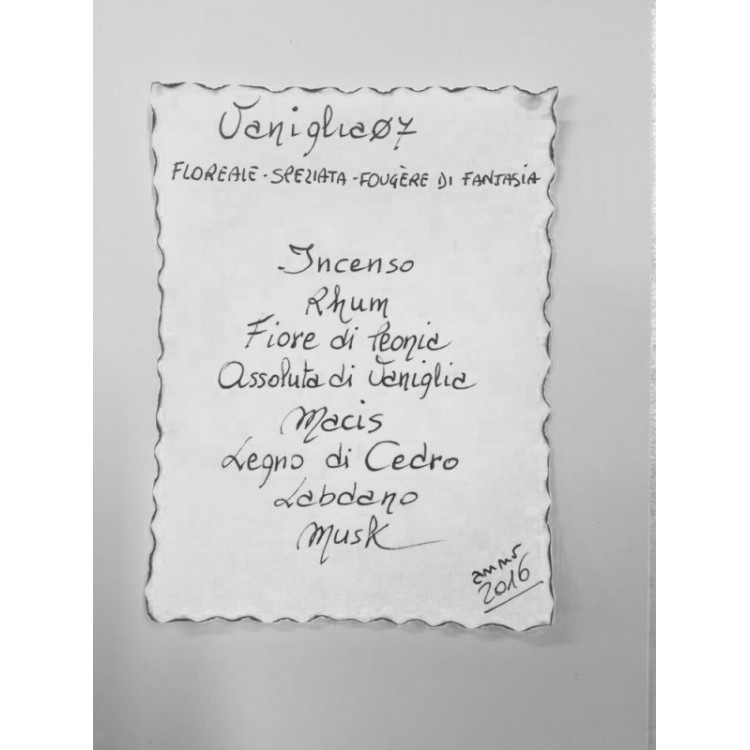 Vaniglia Ø7
FLOREALE - SPEZIATA - FOUGÈRE DI FANTASIA
Incenso
Rhum
Fiore di Peonia
Assoluta di Vaniglia
Macis
Legno di Cedro
Labdano
Musk
anno
2016